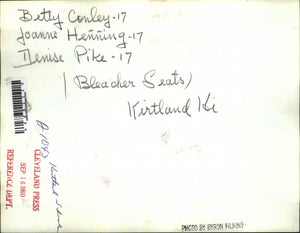 Betty Conley-17
Joanne Henning-17
Denise Pike-17
(Bleacher Seats)
Kirtland Hi
CLEVELAND PRESS
SEP 16 1960
REFERENCE DEPT.
PHOTO BY BYRON FILKINS